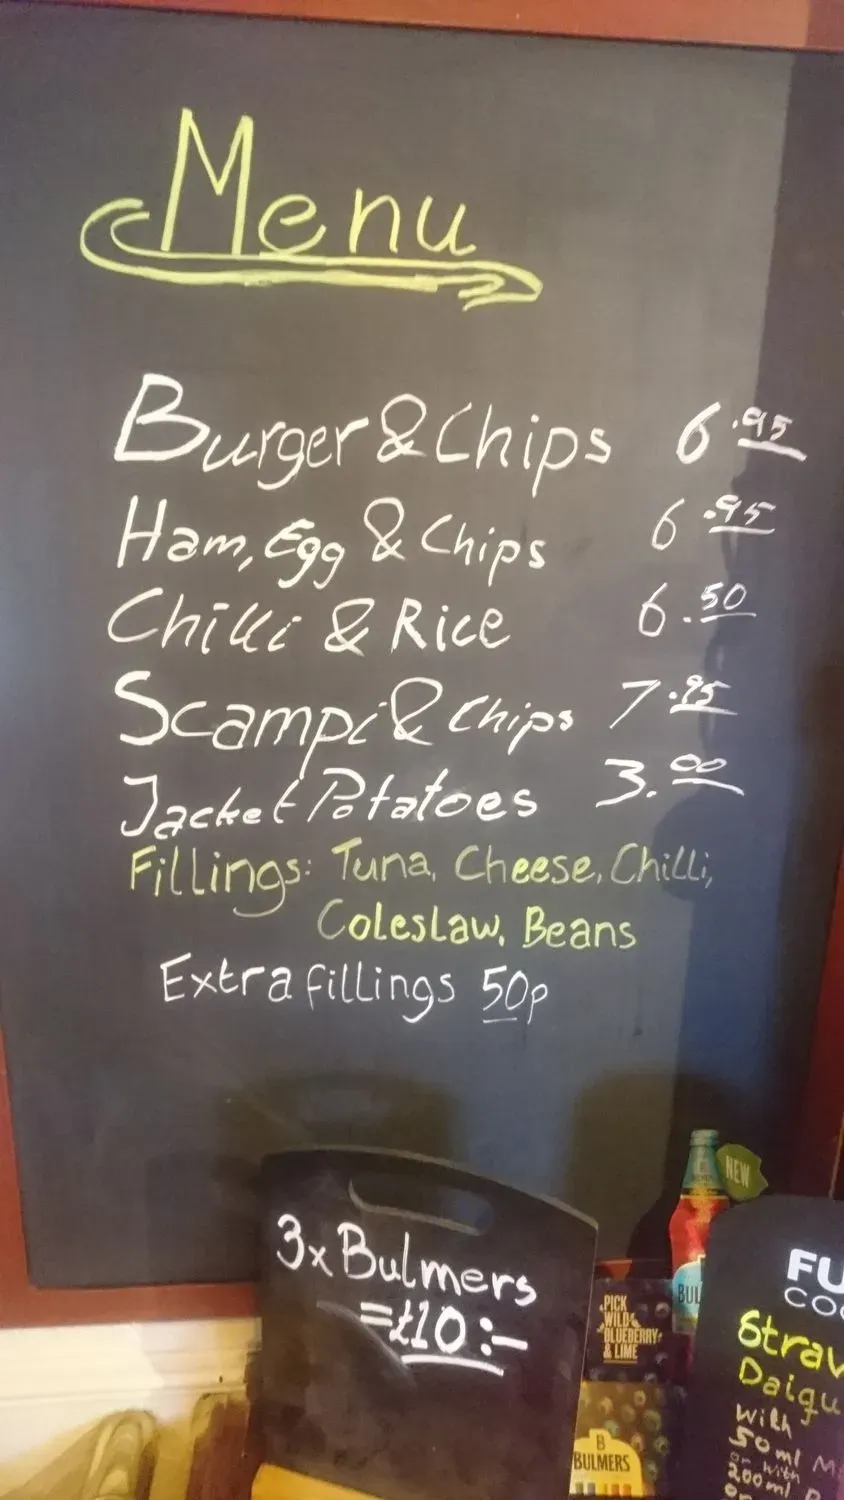 Menu
Burger & Chips 6.95
Ham, Egg & Chips 6.95
Chilli & Rice 6.50
Scampi & Chips 7.95
Jacket Potatoes 3.00
Fillings: Tuna, Cheese, Chilli,
Coleslaw, Beans
Extra fillings 50p
3x Bulmers
=£10:-
NEW
BUL
PICK
WILD
BLUEBERRY
& LIME
B
BULMERS
FU
CO
Straw
Daiqu
with
50ml M
or with
200ml
or